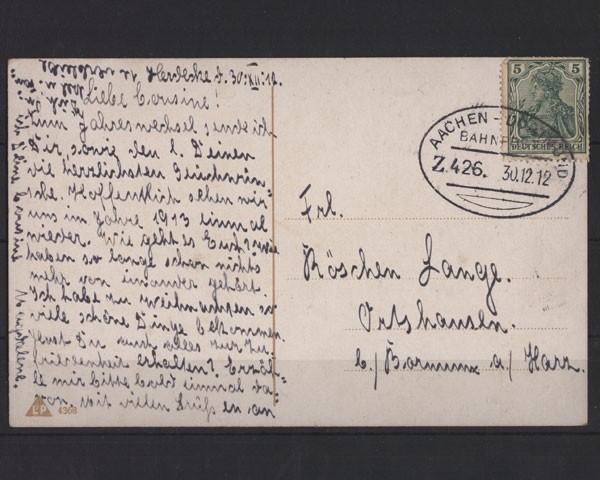 Herdecke d. 30.XII.12.
Liebe Cousine!
Zum Jahreswechsel sende ich
Dir sowie den l. Deinen
die herzlichsten Glückwün-
sche. Hoffentlich sehen wir
uns im Jahre 1913 einmal
wieder. Wie geht es Euch? Wir
haben so lange schon nichts
mehr von einander gehört.
Ich habe zu Weihnachten so
viele schöne Dinge bekommen.
Hast Du auch alles zur Zu-
friedenheit erhalten? Erzäh-
le mir bitte bald einmal da-
von. Mit vielen Grüß en an
Deine Cousine
Magdalene.
5 5
DEUTSCHES REICH
AACHEN -
BAHNP
Z.426. 30.12.12
Frl.
Röschen Lange.
Ortshausen.
b./Bornum a./Harz.
4368